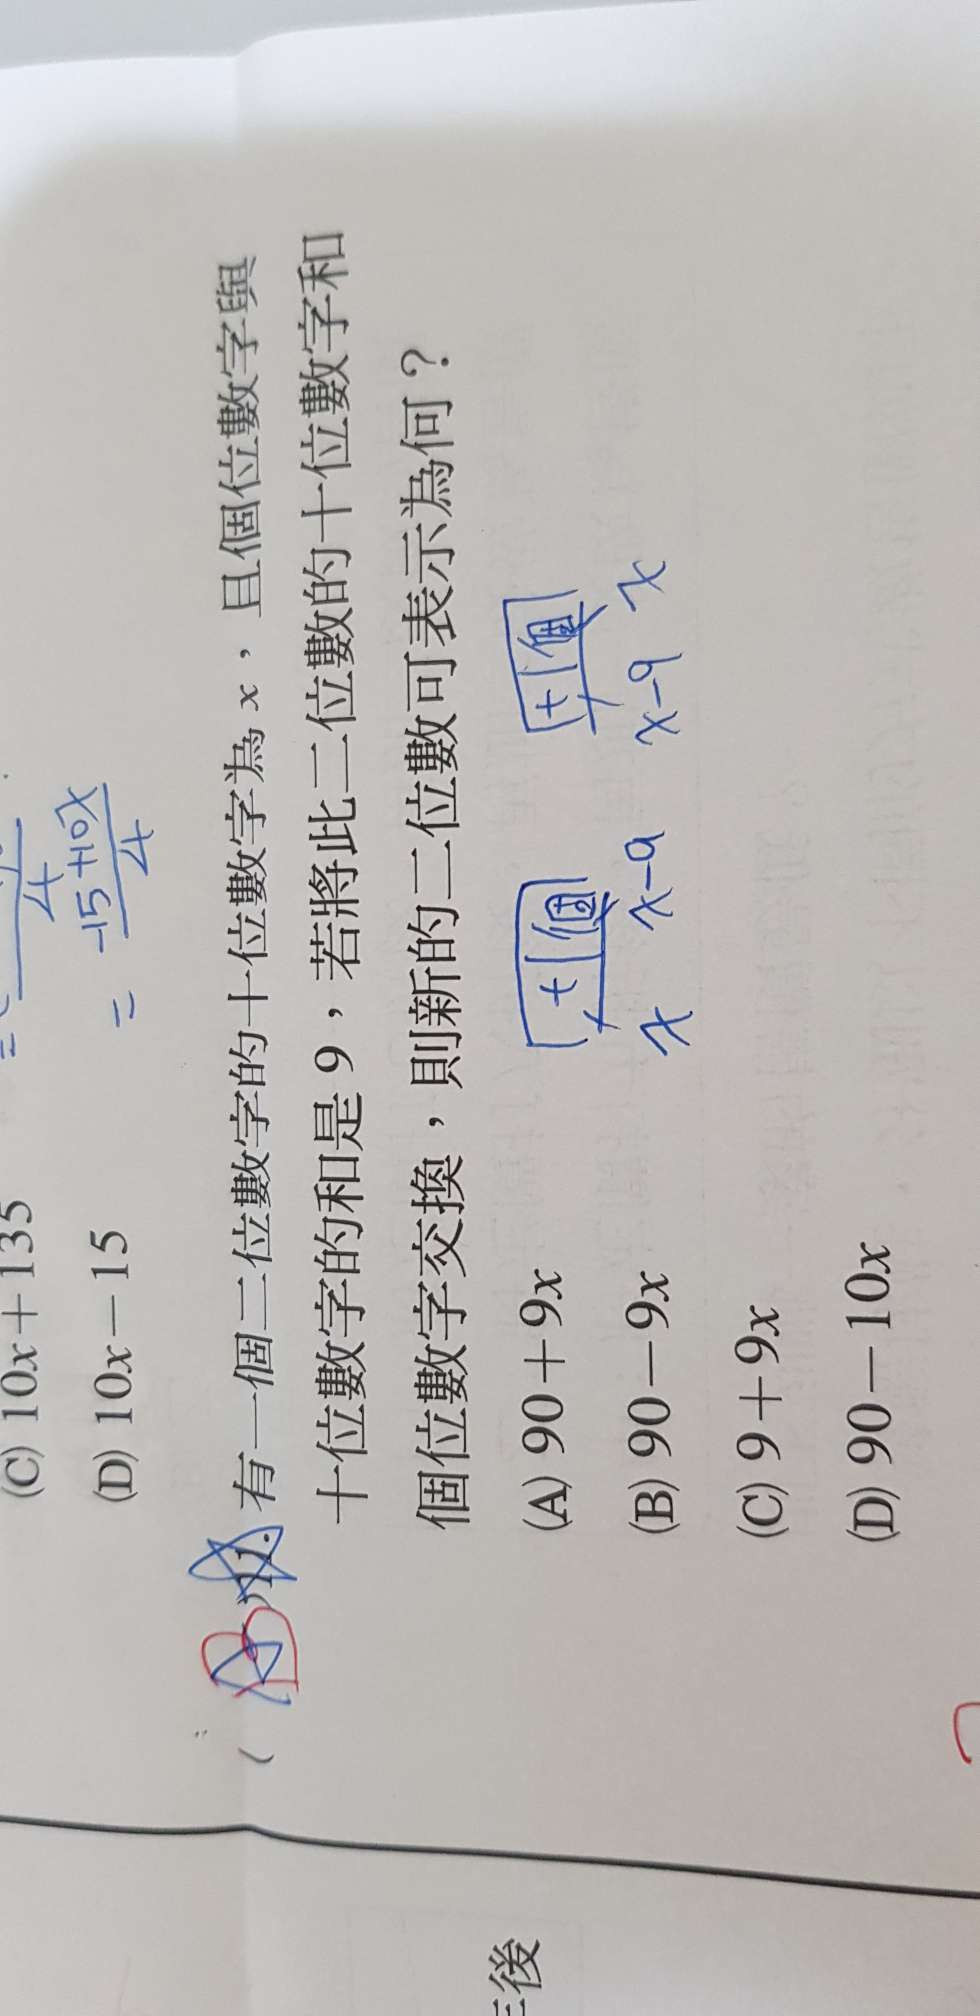 (C) 10x＋135
(D) 10x－15
4
= -15+10x
4
( B )11. 有一個二位數字的十位數字為 x，且個位數字與
十位數字的和是 9，若將此二位數的十位數字和
個位數字交換，則新的二位數可表示為何？
(A) 90＋9x
(B) 90－9x
(C) 9＋9x
(D) 90－10x
十 個 十 個
x x-9 x-9 x
後